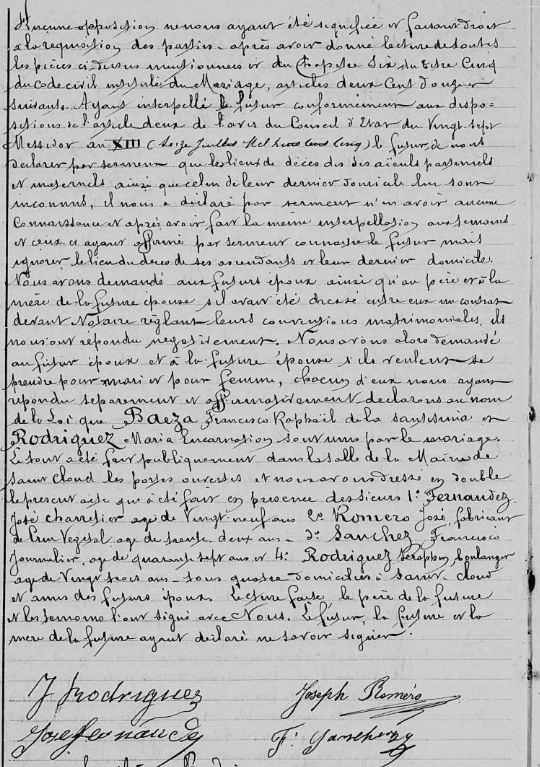 Aucune opposition ne nous ayant été signifiée et faisant droit
à la requisition des parties, après avoir donné lecture de toutes
les pièces ci-dessus mentionnées et du Chapitre Six du titre Cinq
du code civil intitulé du Mariage, articles deux Cent douze et
suivants. Ayant interpellé le futur conformément aux dispo-
sitions de l'article deux de l'avis du Conseil d'Etat du Vingt-sept
Messidor an XIII (Seize Juillet Mil huit cent cinq) le futur de nous
déclarer par serment que les lieux de décès des ses aïeuls paternels
et maternels ainsi que celui de leur dernier domicile lui sont
inconnus, il nous a déclaré par serment n'en avoir aucune
connaissance et après avoir fait la même interpellation aux témoins
et ceux ci ayant affirmé par serment connaître le futur mais
ignorer le lieu du décès de ses ascendants et leur dernier domicile.
Nous avons demandé aux futurs époux ainsi qu'au père et à la
mère de la future épouse s'il avait été dressé entre eux un contrat
devant Notaire réglant leurs conventions matrimoniales, ils
nous ont répondu négativement. Nous avons alors demandé
au futur époux et à la future épouse s'ils veulent se
prendre pour mari et pour femme, chacun d'eux nous ayant
répondu séparément et affirmativement déclarons au nom
de la Loi que Baeza Francisco Raphaël de la santisima et
Rodriguez Maria Encarnation sont unis par le mariage.
Le tout a été fait publiquement dans la salle de la Mairie de
Saint Cloud les portes ouvertes et nous avons dressé en double
le présent acte qui a été fait en présence des sieurs 1° Fernandez
José charretier agé de Vingt neuf ans 2° Romero José, fabricant
de Crin Végétal agé de trente deux ans - 3° Sanchez Francisco
Journalier, agé de quarante sept ans et 4° Rodriguez Séraphin, boulanger
agé de Vingt trois ans - tous quatre domiciliés à Saint Cloud
et amis des futurs époux. Lecture faite, le père de la future
et les témoins l'ont signé avec Nous. Le futur, la future et la
mère de la future ayant déclaré ne savoir signer.
J Rodriguez Joseph Roméro
José Fernández F.